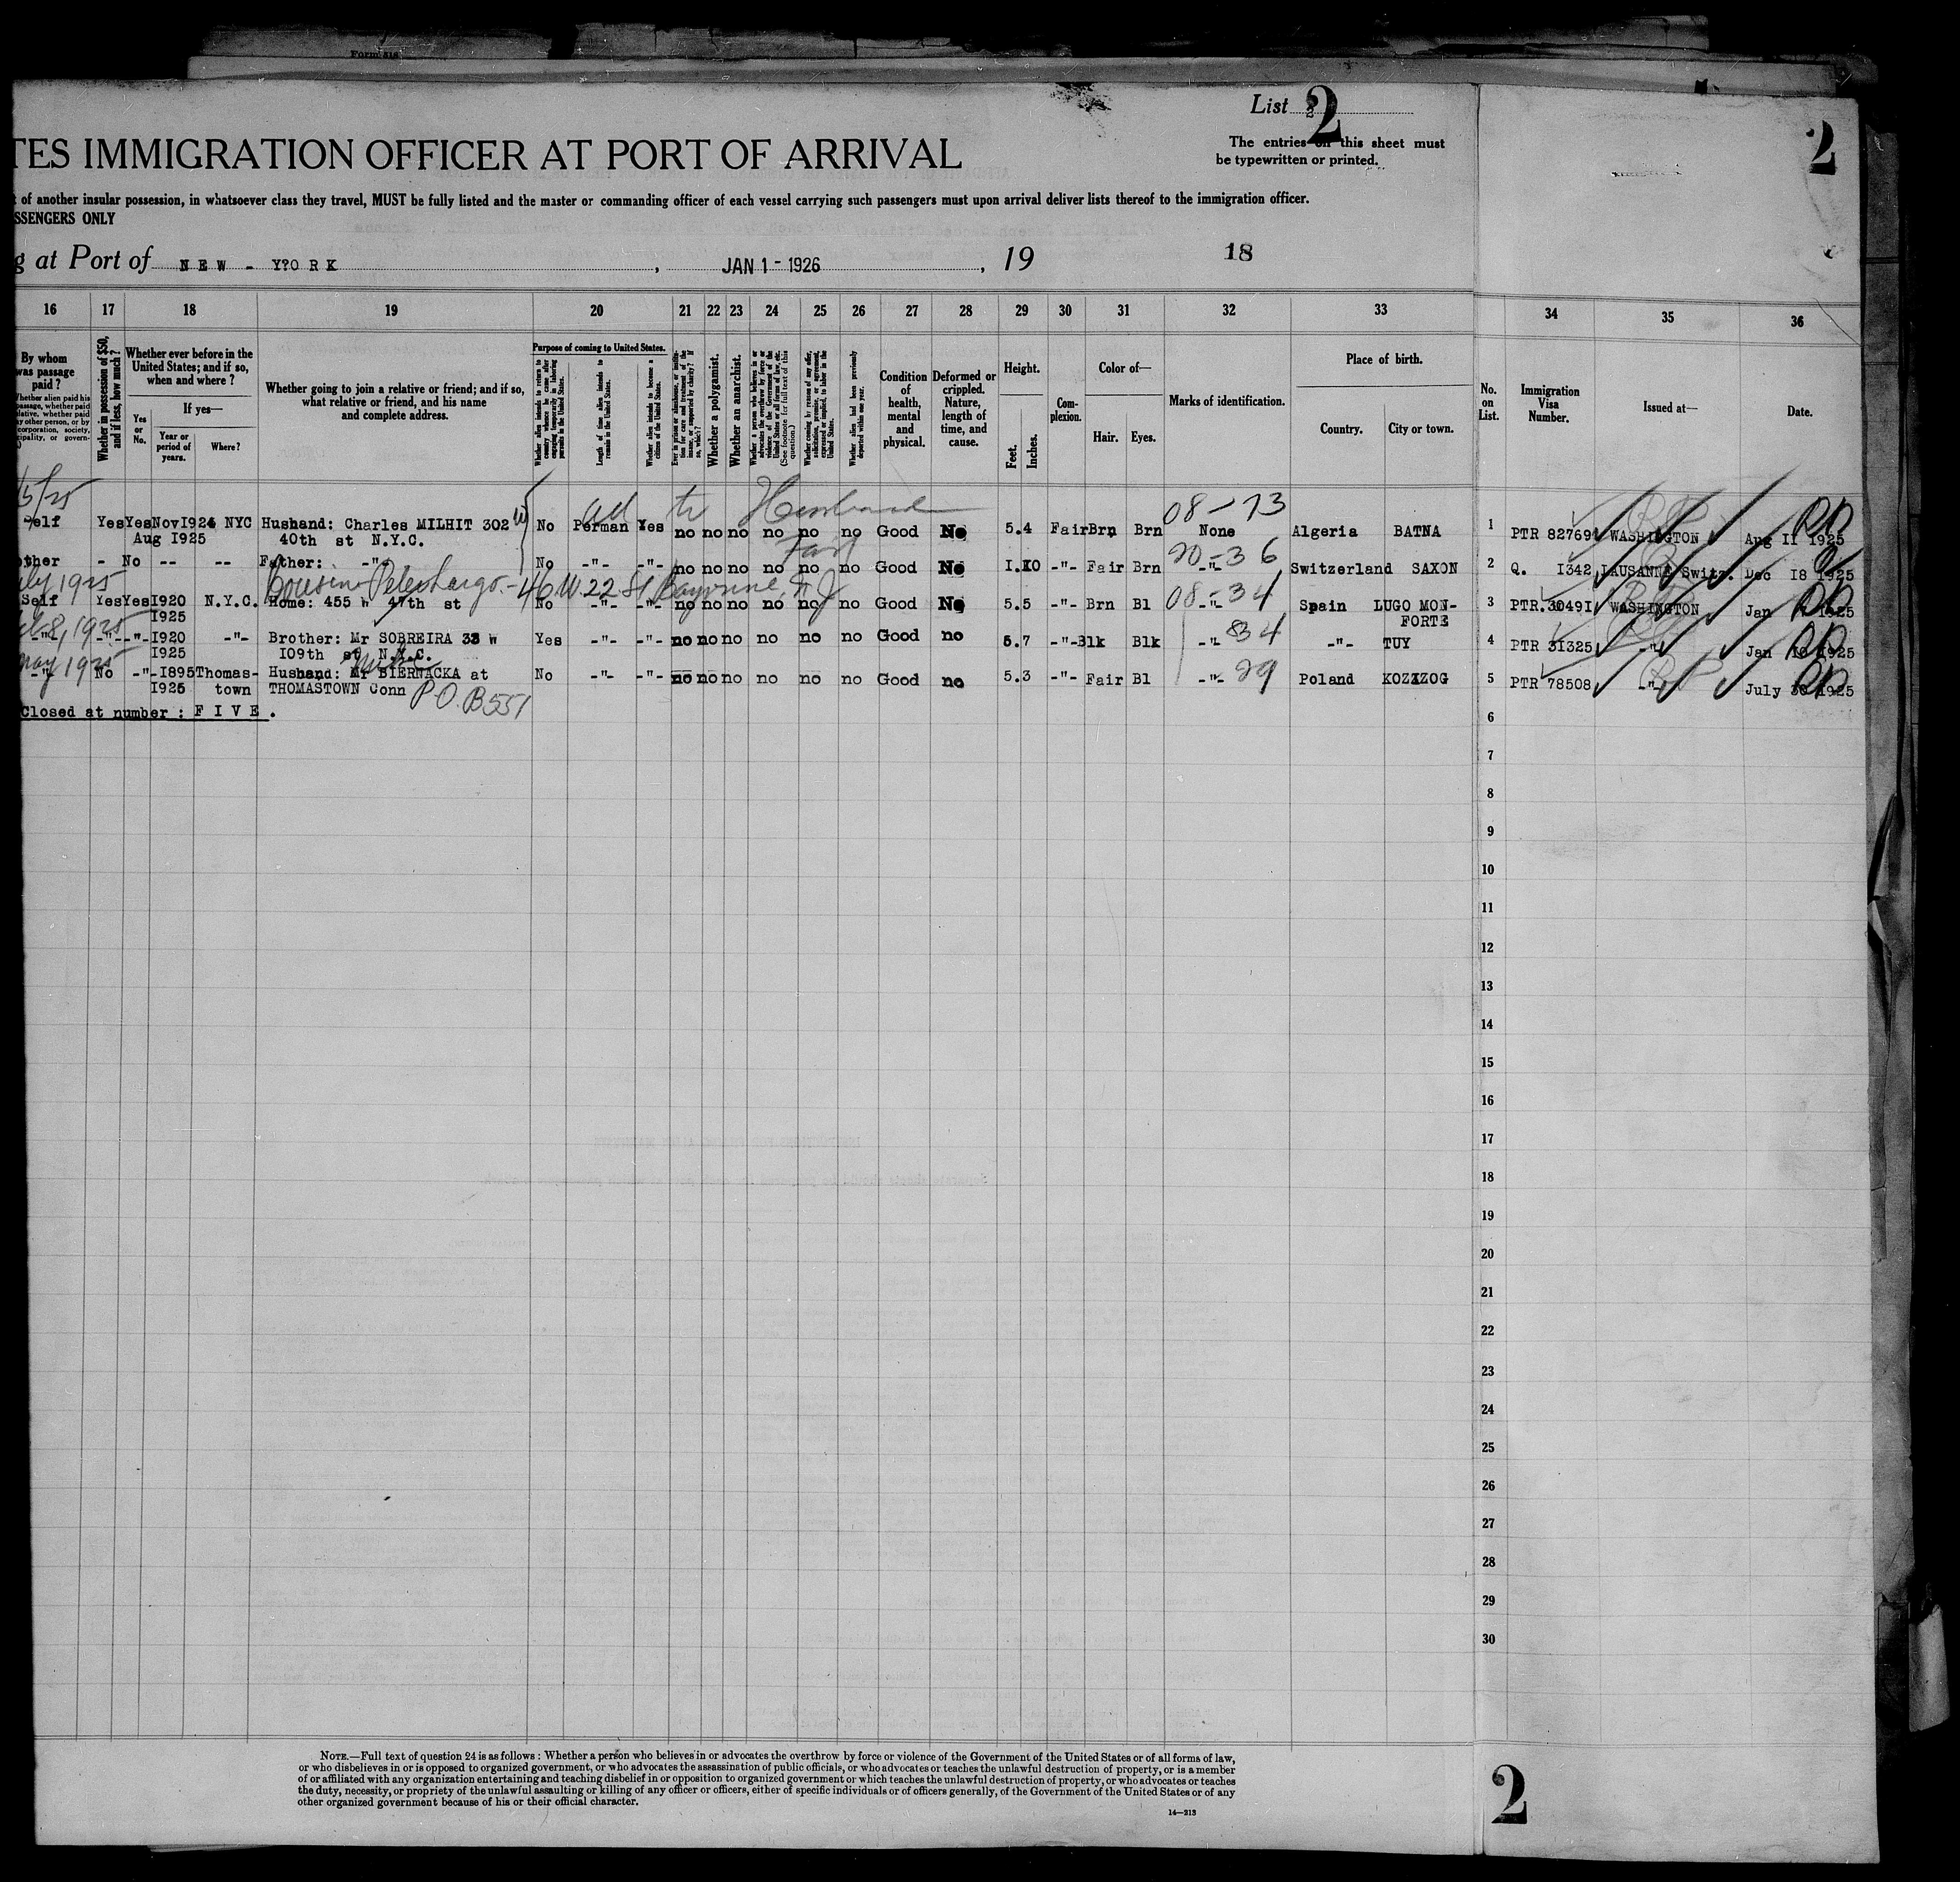 Form 518
List 2
2
The entries on this sheet must
be typewritten or printed.
2
TES IMMIGRATION OFFICER AT PORT OF ARRIVAL
of another insular possession, in whatsoever class they travel, MUST be fully listed and the master or commanding officer of each vessel carrying such passengers must upon arrival deliver lists thereof to the immigration officer.
SSENGERS ONLY
g at Port of NEW - Y?ORK , JAN 1 - 1926 , 19 18
16 17 18 19 20 21 22 23 24 25 26 27 28 29 30 31 32 33 34 35 36
By whom
was passage
paid?
Whether in possession of $50,
and if less, how much?
Whether ever before in the
United States; and if so,
when and where?
Yes
or
No.
If yes—
Year or
period of
years.
Where?
Whether going to join a relative or friend; and if so,
what relative or friend, and his name
and complete address.
Purpose of coming to United States.
Length of time alien intends to
remain in the United States.
Whether alien intends to become a
citizen of the United States.
Whether a polygamist.
Whether an anarchist.
Condition
of
health,
mental
and
physical.
Deformed or
crippled.
Nature,
length of
time, and
cause.
Height.
Feet.
Inches.
Com-
plexion.
Color of—
Hair.
Eyes.
Marks of identification.
Place of birth.
Country.
City or town.
No.
on
List.
Immigration
Visa
Number.
Issued at—
Date.
Husband
08-73
Self Yes Yes Nov I924 NYC Husband: Charles MILHIT 302 W No Perman Yes no no no no no no Good No 5.4 Fair Brn Brn None Algeria BATNA 1 PTR 82769 WASHINGTON Aug II 1925
Aug I925 40th st N.Y.C.
20-36
other - No -- -- Father: -"- No -"- -"- no no no no no no Good No I.IO -"- Fair Brn -"- Switzerland SAXON 2 Q. I342 LAUSANNE Switz. Dec I8 1925
July 1925 Cousin 46 W. 22 St Bayonne, N J
08-34
Self Yes Yes I920 N.Y.C. Home: 455 W 47th st No -"- -"- no no no no no no Good No 5.5 -"- Brn Bl -"- Spain LUGO MON- 3 PTR.3049I WASHINGTON Jan 1925
I925 FORTE
8, 1925 34
-"- -"- -"- I920 -"- Brother: Mr SOBREIRA 33 W Yes -"- -"- no no no no no no Good no 5.7 -"- Blk Blk -"- -"- TUY 4 PTR 31325 -"- Jan 1925
I925 I09th st N.Y.C.
May 1925 29
-"- No -"- I895 Thomas- Husband: Mr BIERNACKA at No -"- -"- no no no no no no Good no 5.3 -"- Fair Bl -"- Poland KOZIZOG 5 PTR 78508 -"- July 30 1925
I925 town THOMASTOWN Conn P.O. B 551
Closed at number : F I V E .
6
7
8
9
10
11
12
13
14
15
16
17
18
19
20
21
22
23
24
25
26
27
28
29
30
NOTE.—Full text of question 24 is as follows: Whether a person who believes in or advocates the overthrow by force or violence of the Government of the United States or of all forms of law,
or who disbelieves in or is opposed to organized government, or who advocates the assassination of public officials, or who advocates or teaches the unlawful destruction of property, or is a member
of or affiliated with any organization entertaining and teaching disbelief in or opposition to organized government or which teaches the unlawful destruction of property, or who advocates or teaches
the duty, necessity, or propriety of the unlawful assaulting or killing of any officer or officers, either of specific individuals or of officers generally, of the Government of the United States or of any
other organized government because of his or their official character.
14—213
2